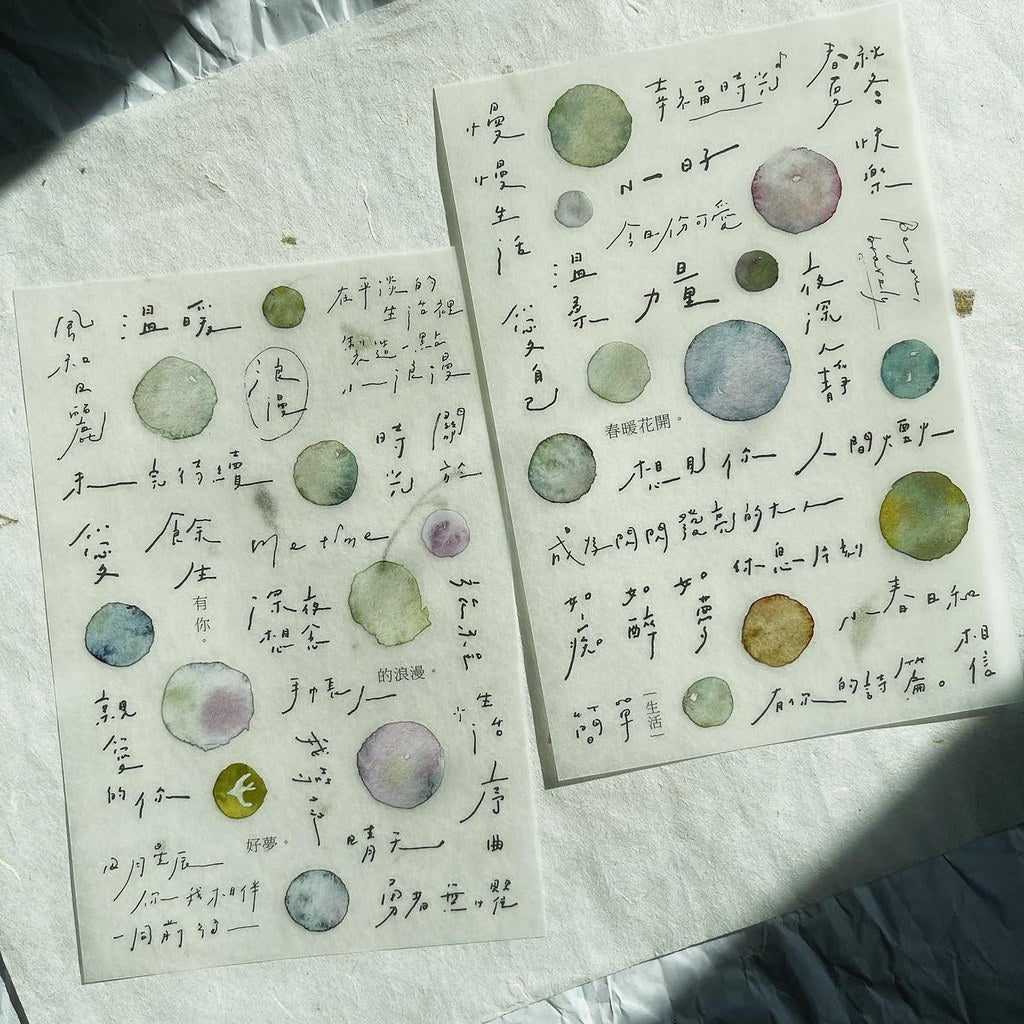 風和日麗
溫暖
在平淡的
生活裡
製造一點
小浪漫
浪漫
未完待續
時光
關於
愛
餘生
有你。
me time
深夜
想念
的浪漫。
親愛的你
手帳人
我等你
生活序曲
好夢。
晴天
日月星辰
你我相伴
一同前行
勇者無懼
慢慢生活
幸福時光
春夏秋冬
快樂
小日子
今日份可愛
Be your
bravely
溫柔
力量
夜深人靜
愛自己
春暖花開。
想見你
人間煙火
成為閃閃發亮的大人
休息一片刻
如癡。
如醉
如夢
小春日和
相信
簡單
生活
有你的詩篇。